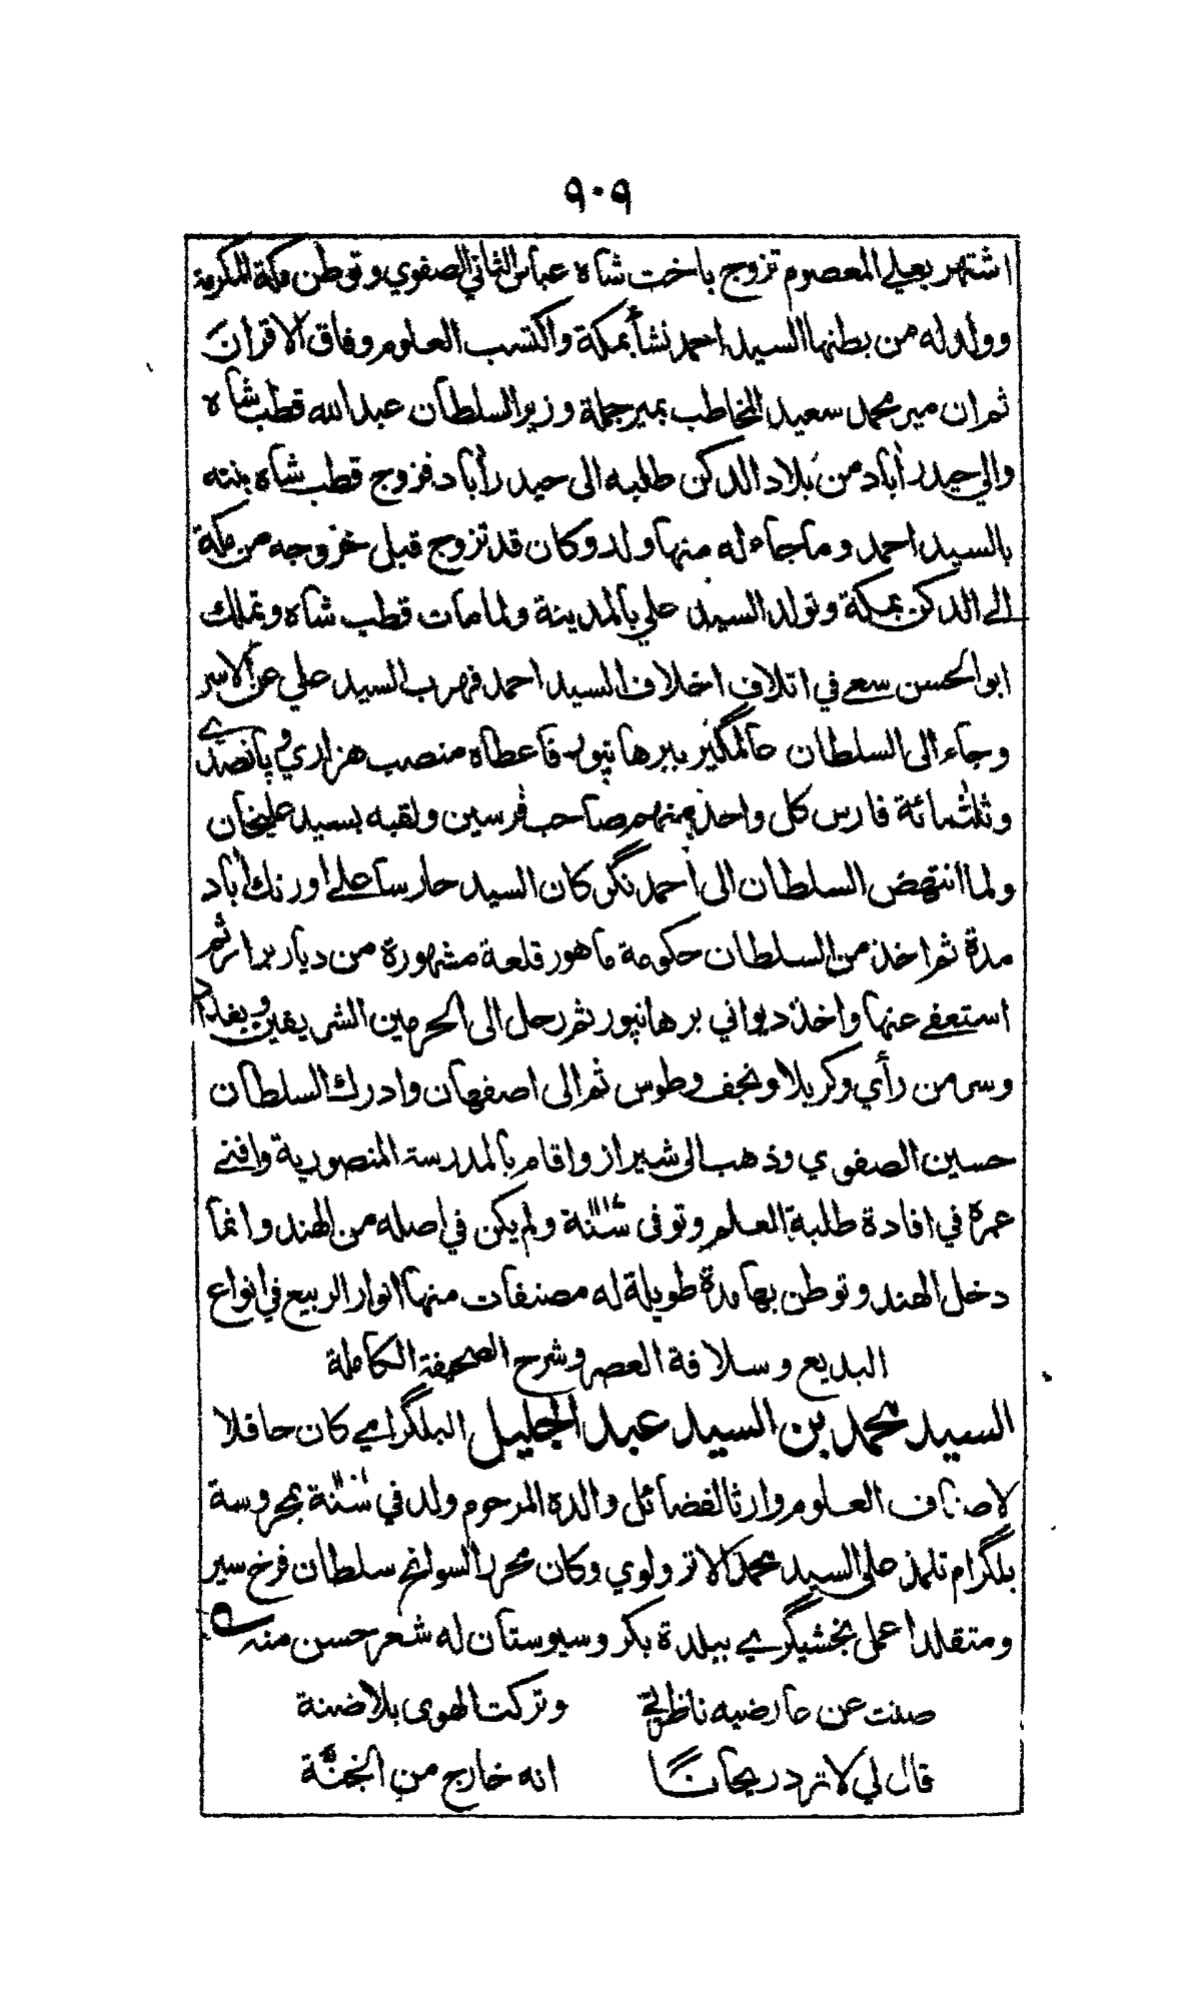 ٩٠٩
اشتهر بعلي المعصوم تزوج باخت شاه عباس الثاني الصفوي وتوطن مكة المكرمة
وولد له من بطنها السيد احمد نشأ بمكة واكتسب العلوم وفاق الاقران
ثم ان مير محمد سعيد المخاطب بمير جملة وزير السلطان عبد الله قطب شاه
والي حيدرأباد من بلاد الدكن طلبه الى حيدرأباد فزوج قطب شاه بنته
بالسيد احمد وما جاء له منها ولد وكان قد تزوج قبل خروجه من مكة
الى الدكن بمكة وتولد السيد علي بالمدينة ولما مات قطب شاه وتملك
ابو الحسن سعى في اتلاف اخلاف السيد احمد فهرب السيد علي عن الاسر
وجاء الى السلطان عالمگير ببرهانپور فاعطاه منصب هزاري و پانصدي
وثلثمائة فارس كل واحد منهم صاحب فرسين ولقبه بسيد عليخان
ولما انتهض السلطان الى احمد نگر كان السيد حارسا على اورنك أباد
مدة ثم اخذ من السلطان حكومة ماهور قلعة مشهورة من ديار برار ثم
استعفى عنها واخذ ديواني برهانپور ثم رحل الى الحرمين الشريفين وبغداد
وسر من رأي وكربلا ونجف وطوس ثم الى اصفهان وادرك السلطان
حسين الصفوي وذهب الى شيراز واقام بالمدرسة المنصورية وافنى
عمره في افادة طلبة العلم وتوفى سنة ولم يكن في اصله من الهند وانما
دخل الهند وتوطن بها مدة طويلة له مصنفات منها انوار الربيع في انواع
البديع وسلافة العصر وشرح الصحيفة الكاملة
السيد محمد بن السيد عبد الجليل البلگرامي كان حافلا
لاصناف العلوم وارثا لفضائل والده المرحوم ولد في سنة بمحروسة
بلگرام تلمذ على السيد محمد الاترولوي وكان محرر السوانح سلطان فرخ سير
ومتقلدا عمل بخشيگري ببلدة بكر وسيوستان له شعر حسن منه
صنت عن عارضيه ناظرتي وتركت الهوى بلا ضنة
قال لي لا ترد ريحانا انه خارج من الجنة